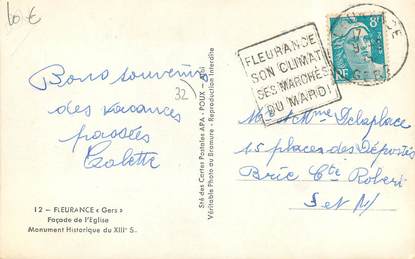 60 €
Bons souvenirs
des vacances
passées
Colette
32
12 - FLEURANCE « Gers »
Façade de l'Eglise
Monument Historique du XIIIe S.
Sté des Cartes Postales APA - POUX -
Véritable Photo au Bromure - Reproduction Interdite
FLEURANCE
SON CLIMAT
SES MARCHÉS
DU MARDI
8F
GERS
Mr et Mme Delaplace
15 places des Déportés
Brie Cte Robert
S et M